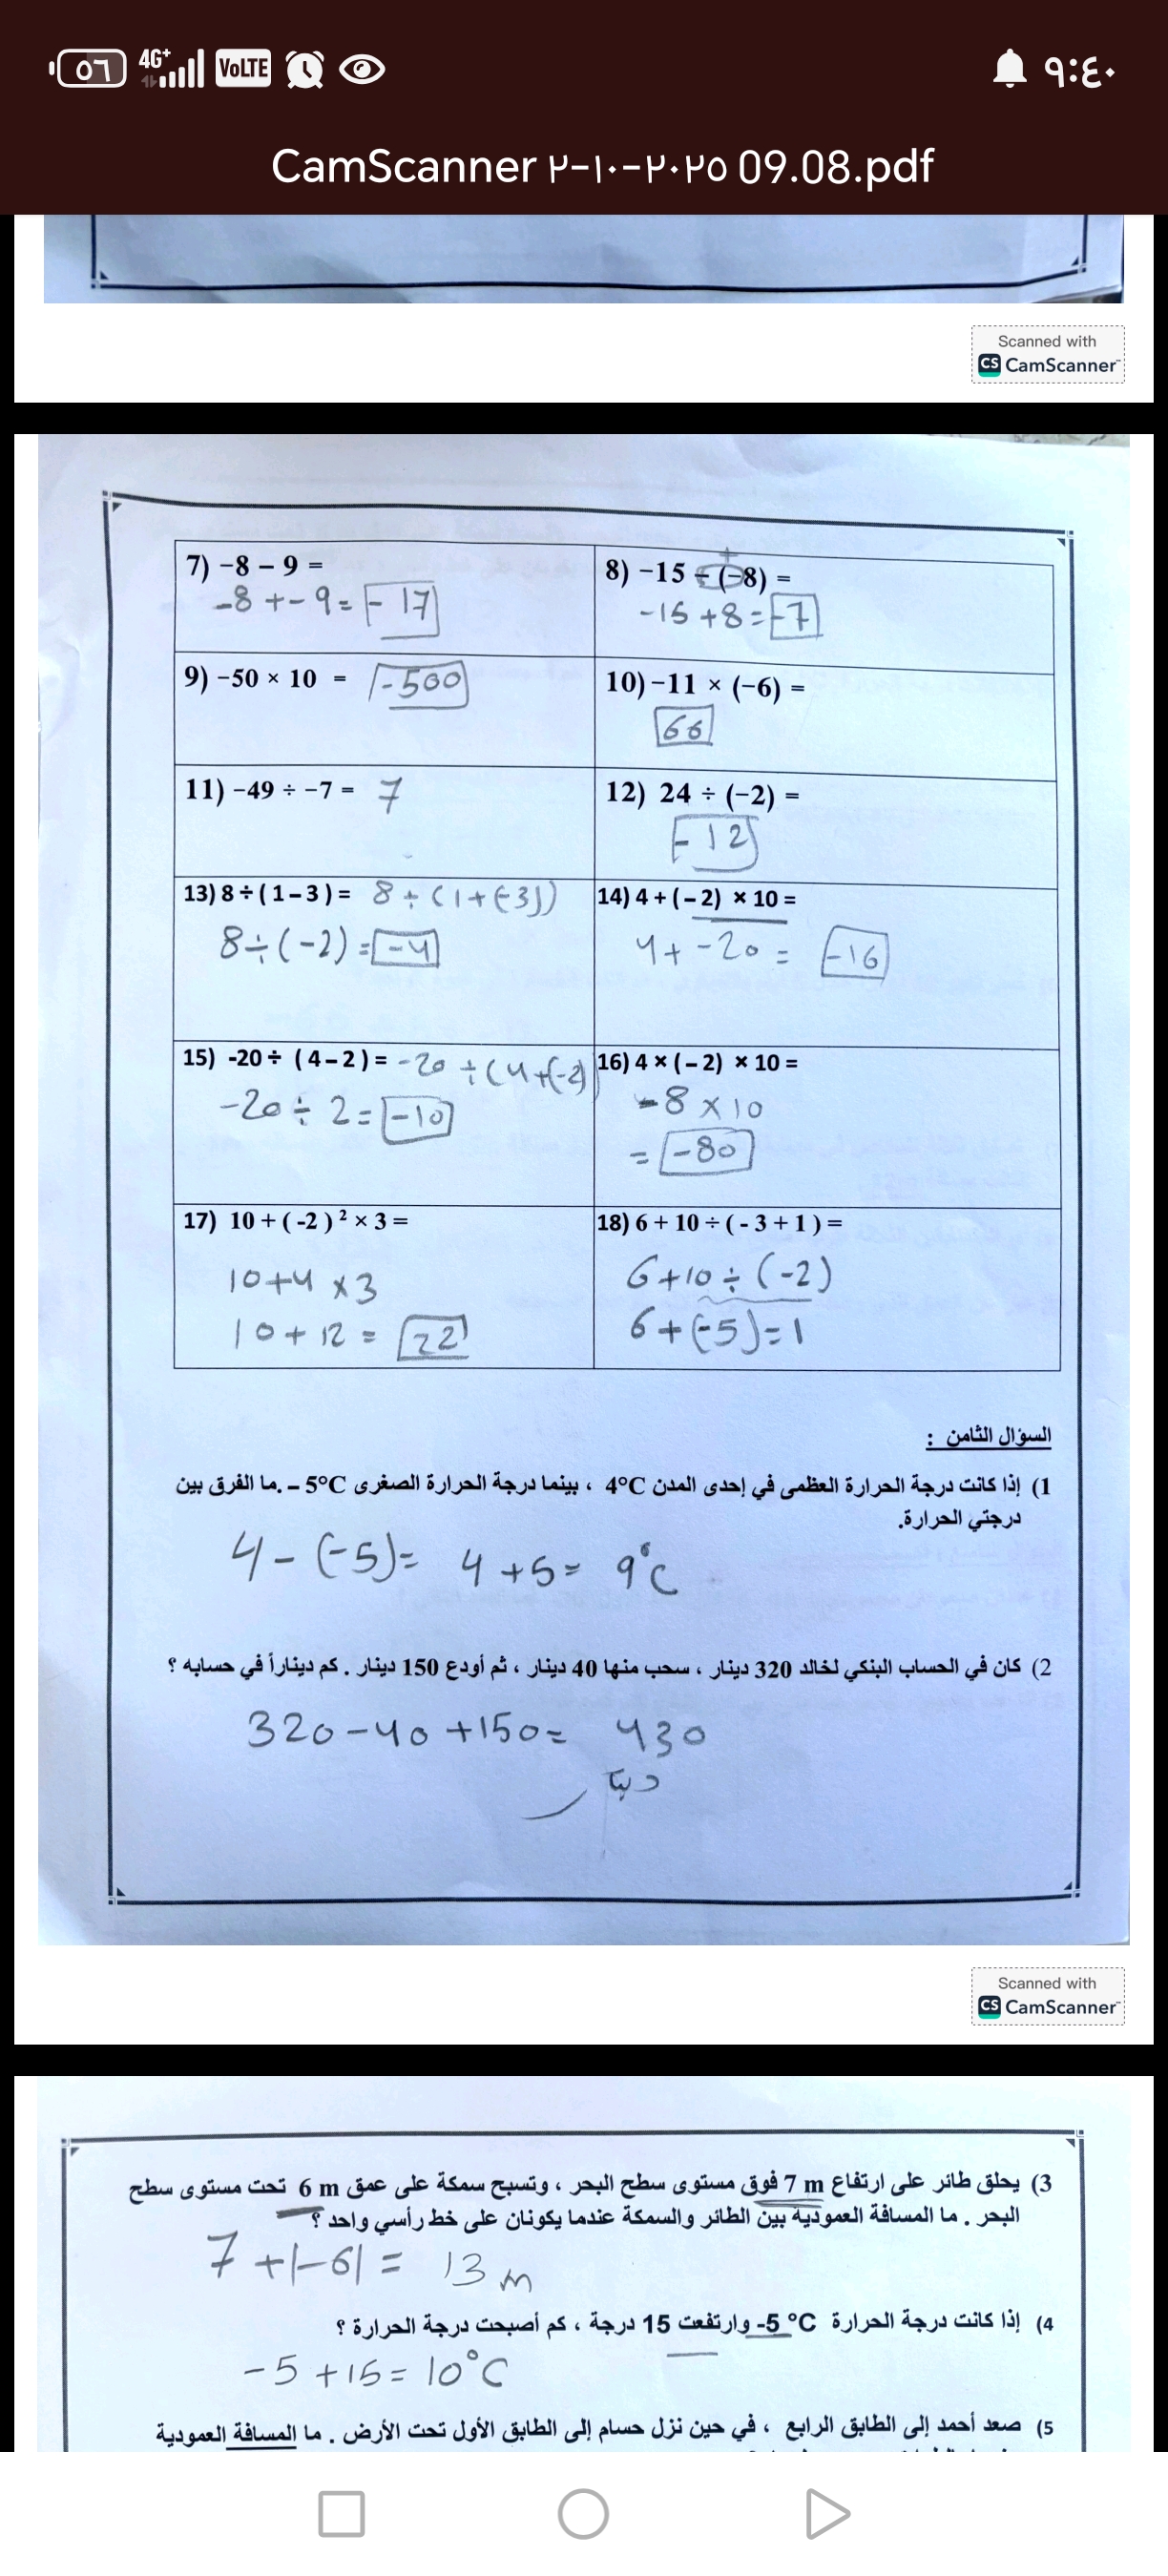 ٥٦ 4G+ VoLTE ٩:٤٠
CamScanner ٢-١٠-٢٠٢٥ 09.08.pdf
Scanned with
CS CamScanner
7) −8 − 9 =
-8 + - 9 = - 17
8) −15 − (−8) =
+
-15 + 8 = -7
9) −50 × 10 = -500
10) −11 × (−6) =
66
11) −49 ÷ −7 = 7
12) 24 ÷ (−2) =
- 12
13) 8 ÷ ( 1 – 3 ) = 8 ÷ (1 + (-3))
8 ÷ (-2) = -4
14) 4 + ( – 2) × 10 =
4 + -20 = -16
15) -20 ÷ ( 4 – 2 ) = -20 ÷ (4 + (-2)
-20 ÷ 2 = -10
16) 4 × ( – 2) × 10 =
-8 × 10
= -80
17) 10 + ( -2 ) ² × 3 =
10 + 4 × 3
10 + 12 = 22
18) 6 + 10 ÷ ( - 3 + 1 ) =
6 + 10 ÷ (-2)
6 + (-5) = 1
السؤال الثامن :
1) إذا كانت درجة الحرارة العظمى في إحدى المدن 4°C ، بينما درجة الحرارة الصغرى – 5°C . ما الفرق بين
درجتي الحرارة.
4 - (-5) = 4 + 5 = 9°C
2) كان في الحساب البنكي لخالد 320 دينار ، سحب منها 40 دينار ، ثم أودع 150 دينار . كم ديناراً في حسابه ؟
320 - 40 + 150 = 430
دينار
Scanned with
CS CamScanner
3) يحلق طائر على ارتفاع 7 m فوق مستوى سطح البحر ، وتسبح سمكة على عمق 6 m تحت مستوى سطح
البحر . ما المسافة العمودية بين الطائر والسمكة عندما يكونان على خط رأسي واحد ؟
7 + |-6| = 13 m
4) إذا كانت درجة الحرارة -5 °C وارتفعت 15 درجة ، كم أصبحت درجة الحرارة ؟
-5 + 15 = 10°C
5) صعد أحمد إلى الطابق الرابع ، في حين نزل حسام إلى الطابق الأول تحت الأرض . ما المسافة العمودية